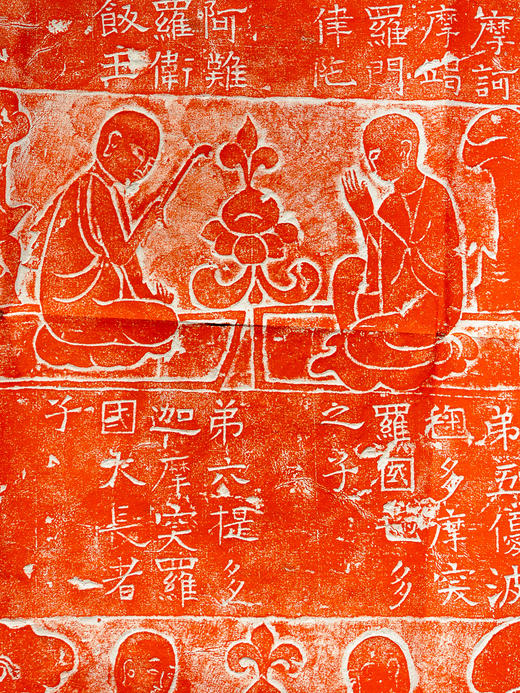 摩訶
摩竭
羅門
律陀
阿難
羅衛
飯王
弟五優波
毱多摩突
羅國多
之子
弟六提多
迦摩突羅
國大長者
子